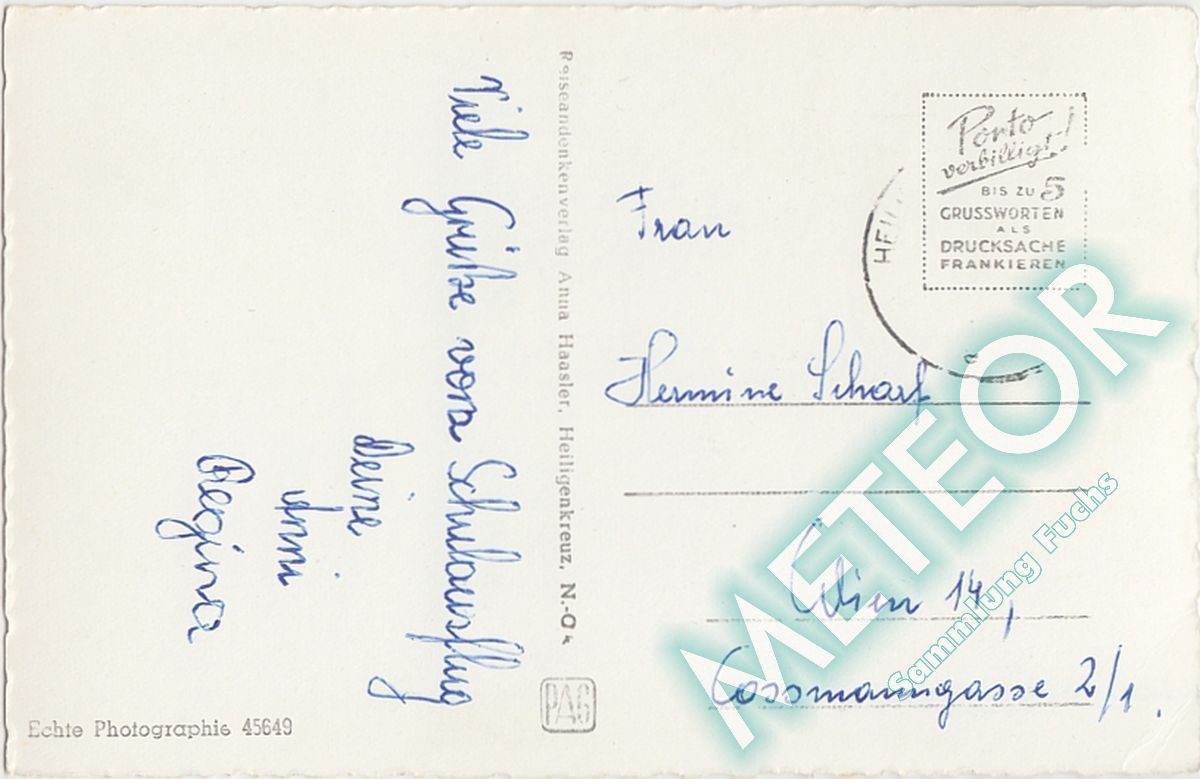 Viele Grüße vom Schulausflug
Deine
Anni
Regina
Reiseandenkenverlag Anna Haasler, Heiligenkreuz, N.-Ö.
PAG
Echte Photographie 45649
Porto
verbilligt!
BIS ZU 5
GRUSSWORTEN
ALS
DRUCKSACHE
FRANKIEREN
Frau
Hermine Scharf
Wien 14,
Cossmanngasse 2/1.
METEOR
Sammlung Fuchs